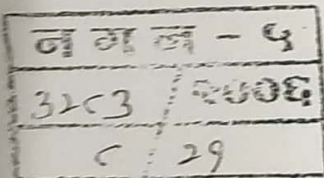 न ग ल - ५
3283 / २००६
८ 29